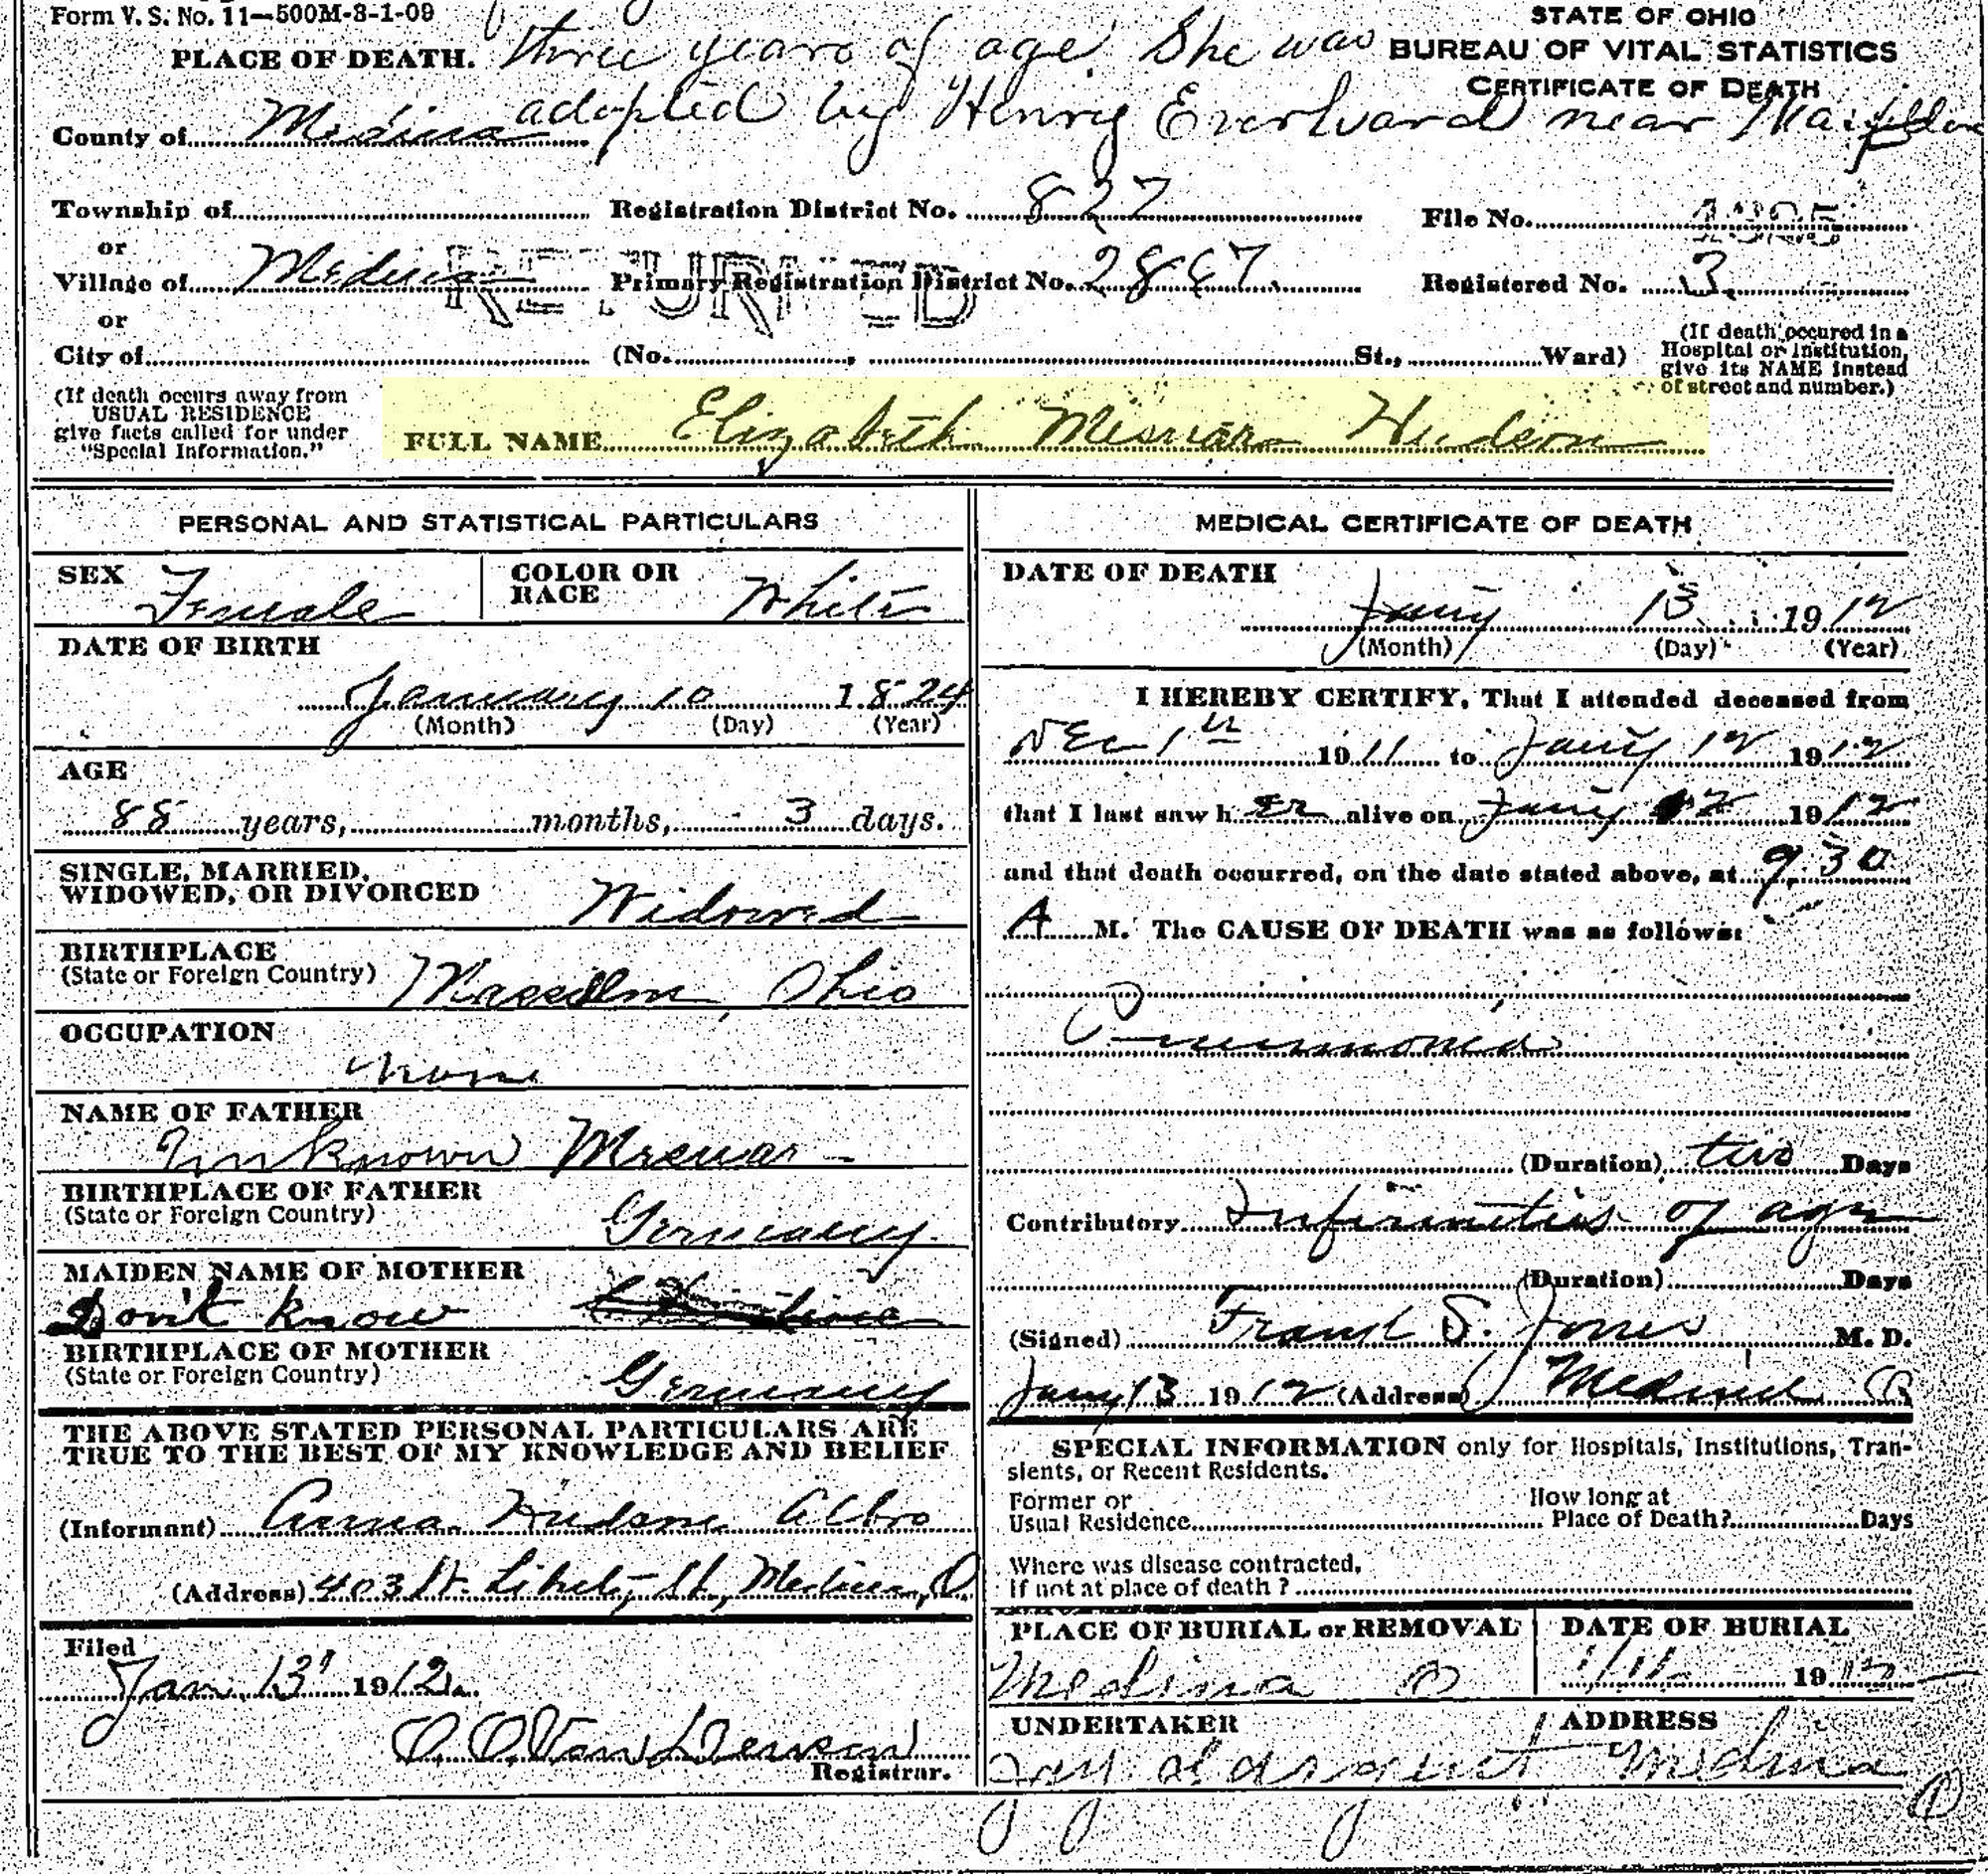 Form V. S. No. 11—500M-3-1-09
STATE OF OHIO
BUREAU OF VITAL STATISTICS
CERTIFICATE OF DEATH
PLACE OF DEATH.
three years of age. She was
adopted by Henry Everhard near
County of Medina
Township of
Registration District No. 827
File No.
or
Village of Medina
RETURNED
Primary Registration District No. 2867
Registered No. 3
or
City of
(No. , St., Ward)
(If death occured in a
Hospital or Institution,
give its NAME instead
of street and number.)
(If death occurs away from
USUAL RESIDENCE
give facts called for under
"Special Information."
FULL NAME Elizabeth Misnar Hudson
PERSONAL AND STATISTICAL PARTICULARS
SEX Female
COLOR OR
RACE White
DATE OF BIRTH
January 10 1824
(Month) (Day) (Year)
AGE
88 years, months, 3 days.
SINGLE, MARRIED,
WIDOWED, OR DIVORCED Widowed
BIRTHPLACE
(State or Foreign Country) Massillon, Ohio
OCCUPATION
none
NAME OF FATHER
Unknown
BIRTHPLACE OF FATHER
(State or Foreign Country) Germany
MAIDEN NAME OF MOTHER
Don't know
BIRTHPLACE OF MOTHER
(State or Foreign Country) Germany
THE ABOVE STATED PERSONAL PARTICULARS ARE
TRUE TO THE BEST OF MY KNOWLEDGE AND BELIEF
(Informant) Anna Hudson Albro
(Address) 403 W. Liberty St, Medina, O.
Filed
Jan 13" 1912
O. O. Van Deusen
Registrar.
MEDICAL CERTIFICATE OF DEATH
DATE OF DEATH
Jany 13 1912
(Month) (Day) (Year)
I HEREBY CERTIFY, That I attended deceased from
Dec 1st 1911 to Jany 12 1912
that I last saw her alive on Jany 12 1912
and that death occurred, on the date stated above, at 9.30
A M. The CAUSE OF DEATH was as follows:
Pneumonia
(Duration) two Days
Contributory Infirmities of age
(Duration) Days
(Signed) Frank S. Jones M. D.
Jany 13 1912 (Address) Medina O
SPECIAL INFORMATION only for Hospitals, Institutions, Tran-
sients, or Recent Residents.
Former or
Usual Residence
How long at
Place of Death? Days
Where was disease contracted,
If not at place of death?
PLACE OF BURIAL or REMOVAL
Medina O
DATE OF BURIAL
1912
UNDERTAKER
ADDRESS
Medina
1